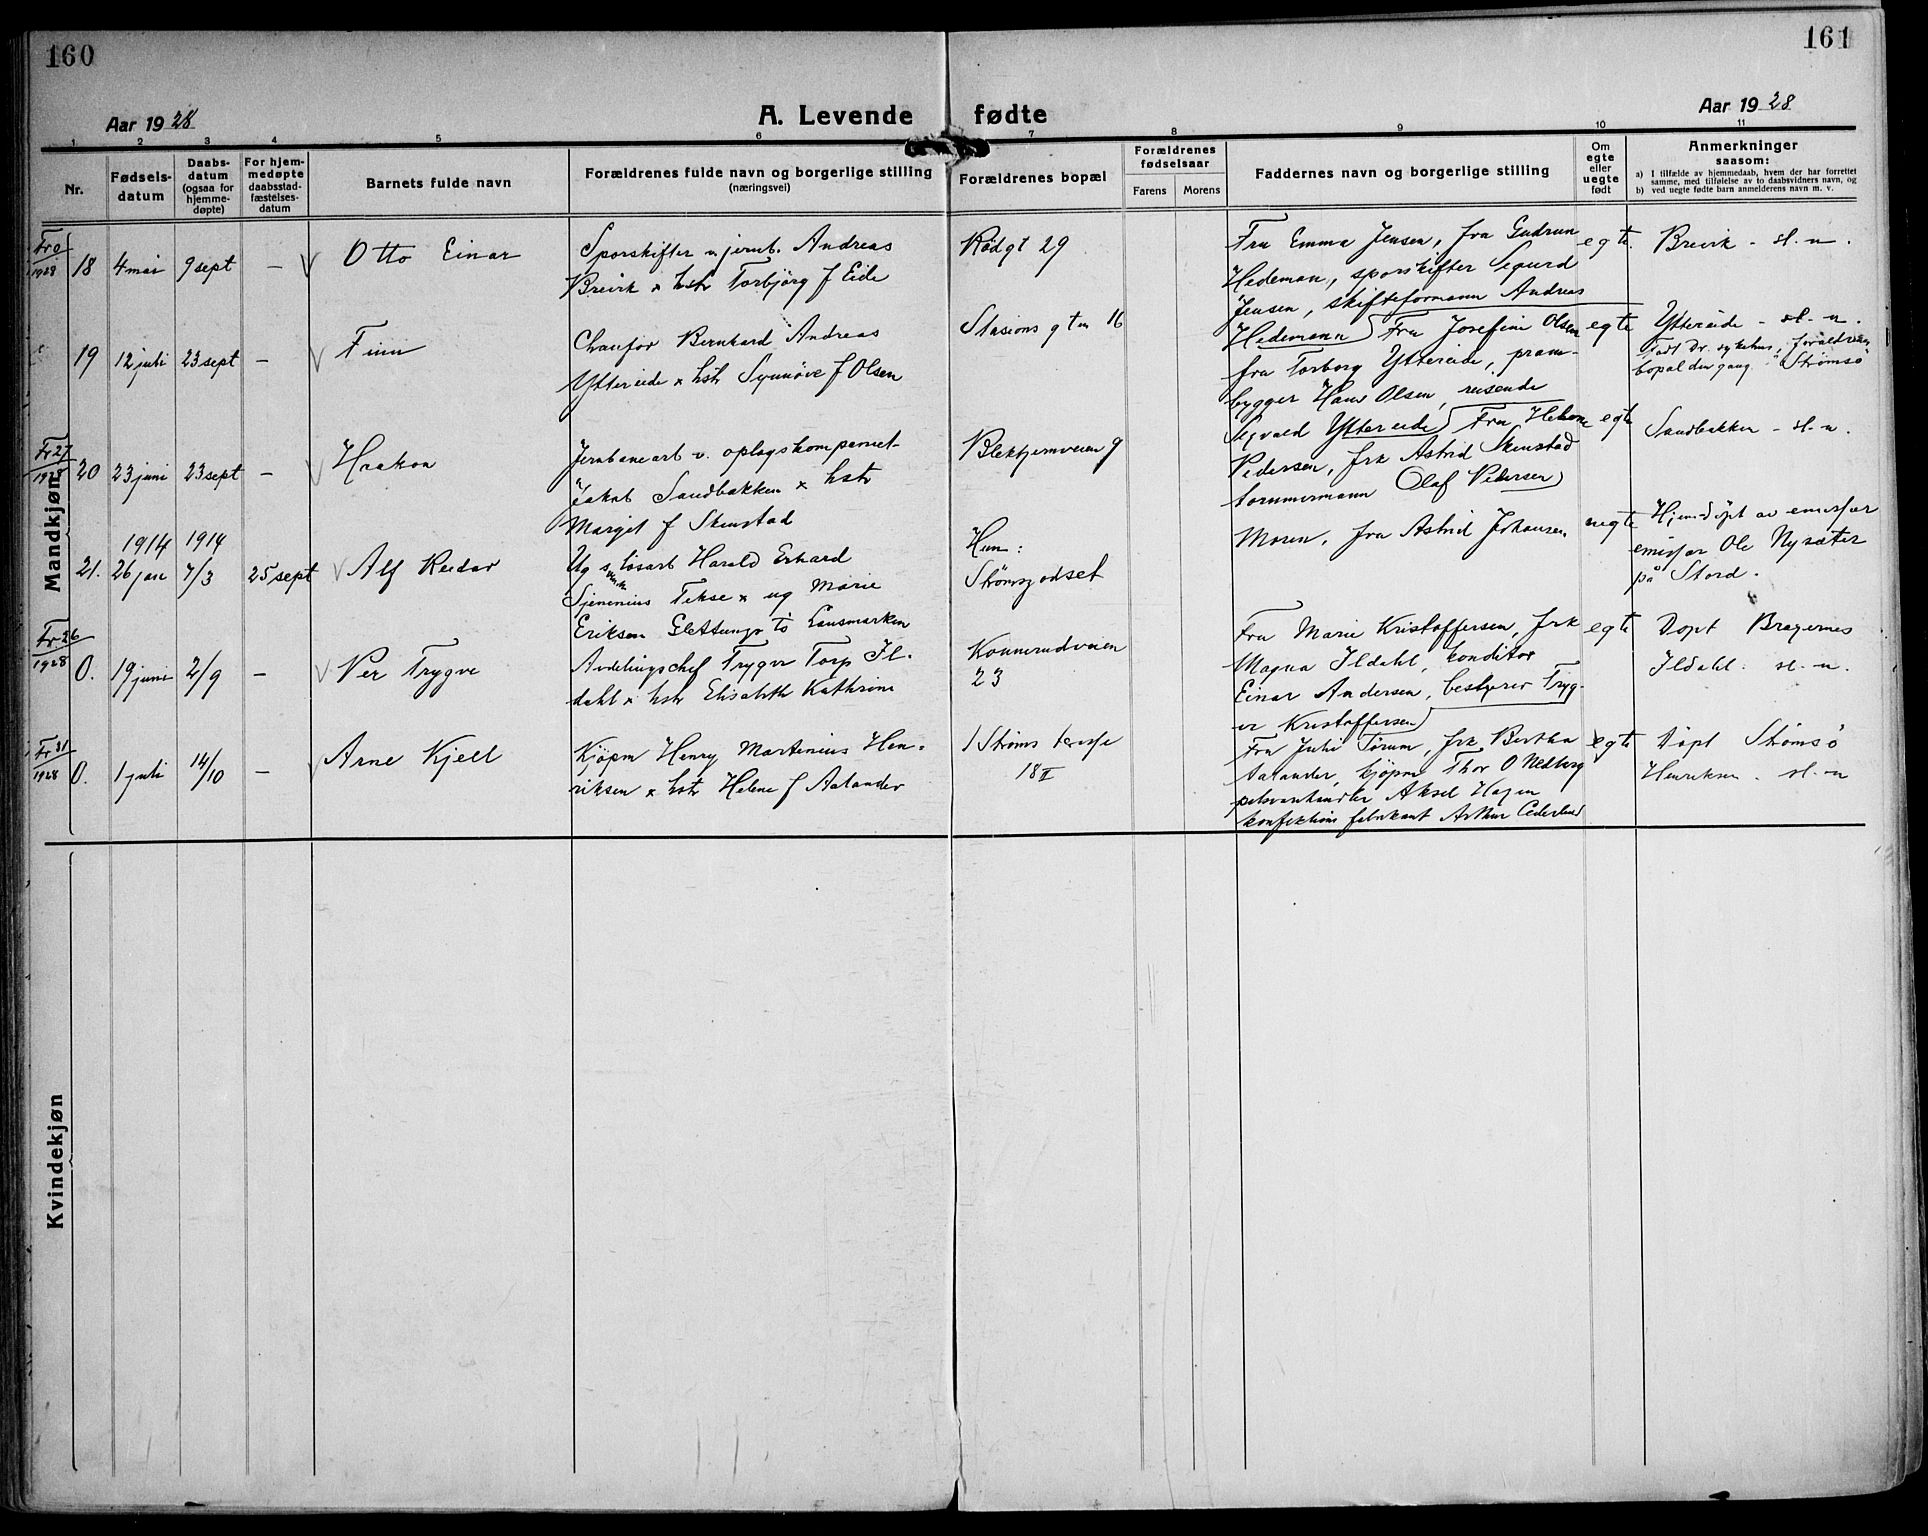 160
161
Aar 1928
A. Levende fødte
Aar 1928
1 2 3 4 5 6 7 8 9 10 11
Nr.
Fødsels-
datum
Daabs-
datum
(ogsaa for
hjemme-
døpte)
For hjem-
medøpte
daabsstad-
fæstelses-
datum
Barnets fulde navn
Forældrenes fulde navn og borgerlige stilling
(næringsvei)
Forældrenes bopæl
Forældrenes
fødselsaar
Farens
Morens
Faddernes navn og borgerlige stilling
Om
egte
eller
uegte
født
Anmerkninger
saasom:
a) I tilfælde av hjemmedaab, hvem der har forrettet
samme, med tilføielse av to daabsvidners navn, og
b) ved uegte fødte barn anmelderens navn m. v.
Mandkjøn
18 4 mai 9 sept – Otto Einar
Sporskifter v jernb. Andreas
Breivk × hstr Torbjörg f Eide
Rødgt 29
Fru Emma Jensen, fra Gudrun
Hedeman, sporskifter Sigurd
Jensen, skifteformann Andreas
Hedemann
egte
Breivik – sl. – n.
19 12 juli 23 sept – Finn
Chaufør Bernhard Andreas
Ytterëide × hstr Synnöve f Olsen
Stasions gtn 16
Fru Josefine Olsen
fra Torborg Ytterëide, pram-
bygger Hans Olsen, reisende
Sigvald Ytterëide
egte
Ytterëide – sl. – n.
Födt Dr. sykehus,
bopæl den gang Strömsö
Fr 27
1928
20 23 juni 23 sept – Haakon
Jernbanearb v. oplagskompaniet
Jakob Sandbakken × hstr
Margit f Skinstad
Blekhjemveien 9
Fru Helene
Pedersen, frk Astrid Skinstad
tömmermann Olaf Pedersen
egte
Sandbakken – sl. – n.
1914 1914
21. 26 jan 7/3 25 sept Alf Reidar
Ug s. lösarb Harald Erhard
Tekse × ug Marie
Eriksen
Hun:
Strömsgodset
Moren, fra Astrid Johansen
uegte
Hjemdöpt av
emisær Ole Nysæter
på Stord.
Fr 26
1928
0. 19 juni 2/9 – Per Trygve
Avdelingschef Trygve Torp Il-
dahl × hstr Elisabeth Kathrine
Konnerudveien
23
Fru Marie Kristoffersen, frk
Magna Ildahl, konditor
Einar Andersen, bestyrer Tryg-
ve Kristoffersen
egte
Döpt Bragernes
Ildahl. sl. – n.
Fr 31
1928
0. 1 juli 14/10 – Arne Kjell
Kjöpm Henry Martinius Hen-
riksen × hstr Helene f Aalander
Ströms terasse
18 II
Fru Juli Törum, frk Bertha
Aalander, kjöpm Thor O Nedberg
pelsvarehandler Aksel Hagen
konfektions fabrikant Arthur Cederlund
egte
Döpt Strömsö
Henriksen. sl. – n
Kvindekjøn